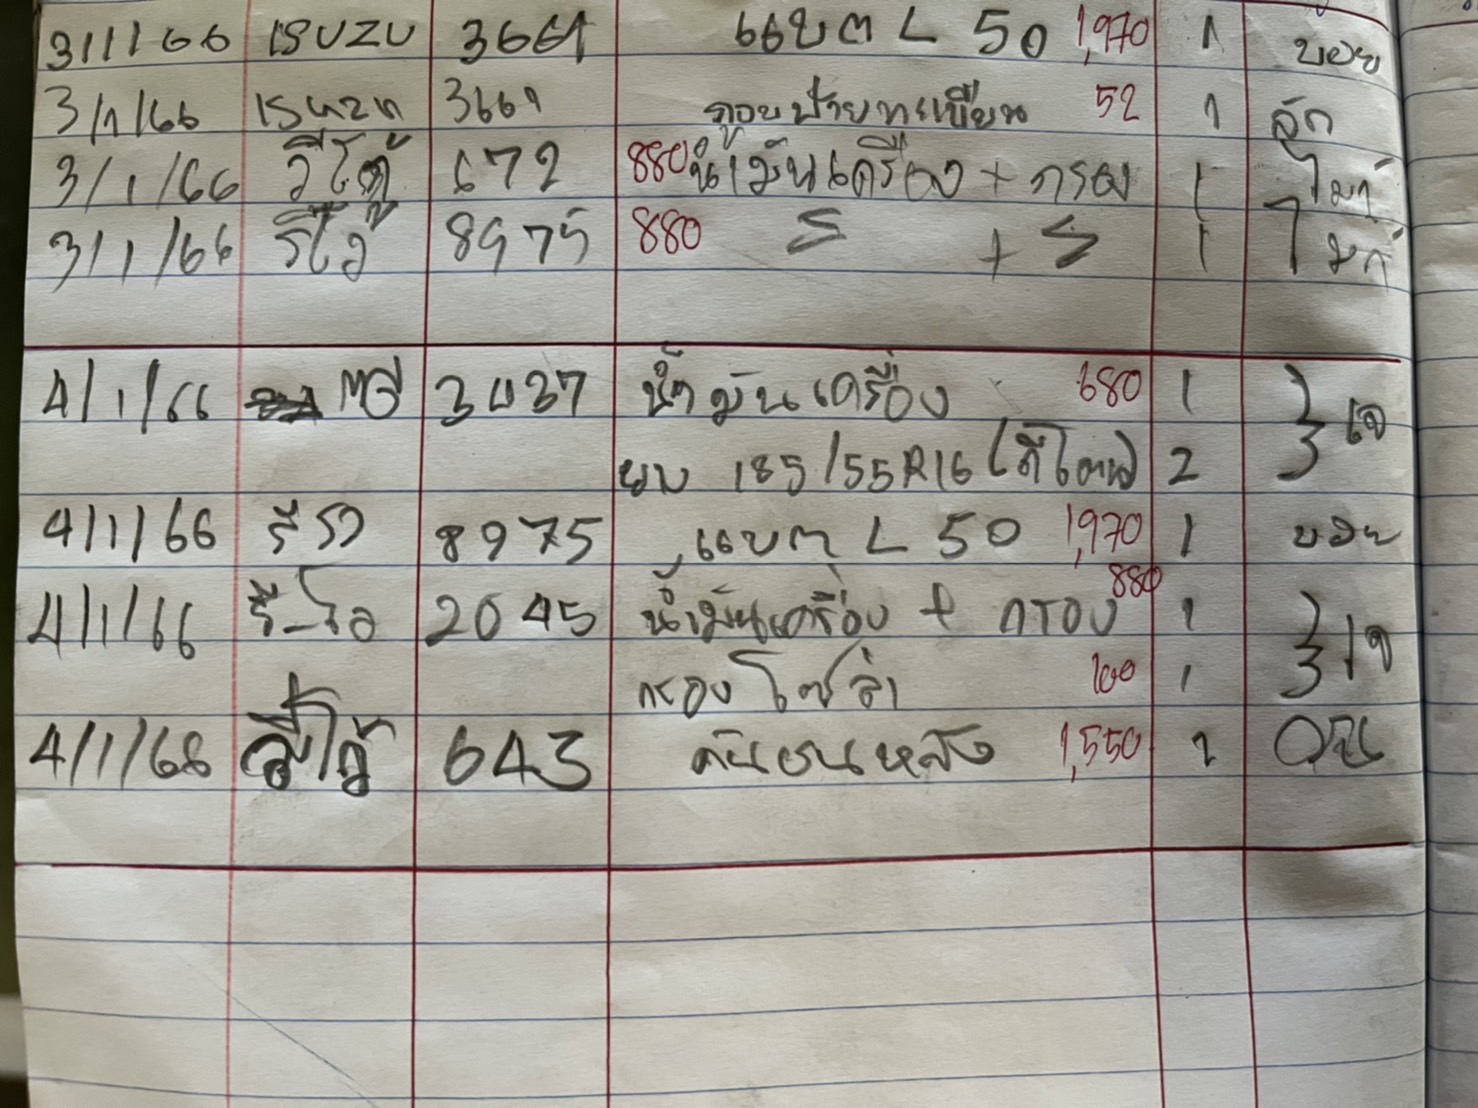 3/1/66 ISUZU 3669 แบต L 50 1,970 1 บอย
3/1/66 ISUZU 3669 กรอบป้ายทะเบียน 52 1
3/1/66 วีโก้ 672 880 น้ำมันเครื่อง + กรอง 1 ไมค์
3/1/66 รีโว้ 8975 880 + 1 ไมค์
4/1/66 3437 น้ำมันเครื่อง 680 1
ยาง 185/55R16 2
4/1/66 8975 แบต L 50 1,970 1 บอย
4/1/66 รีโว 2045 น้ำมันเครื่อง + กรอง 880 1
กรองโซล่า 100 1
4/1/66 วีโก้ 643 กันชนหลัง 1,550 1